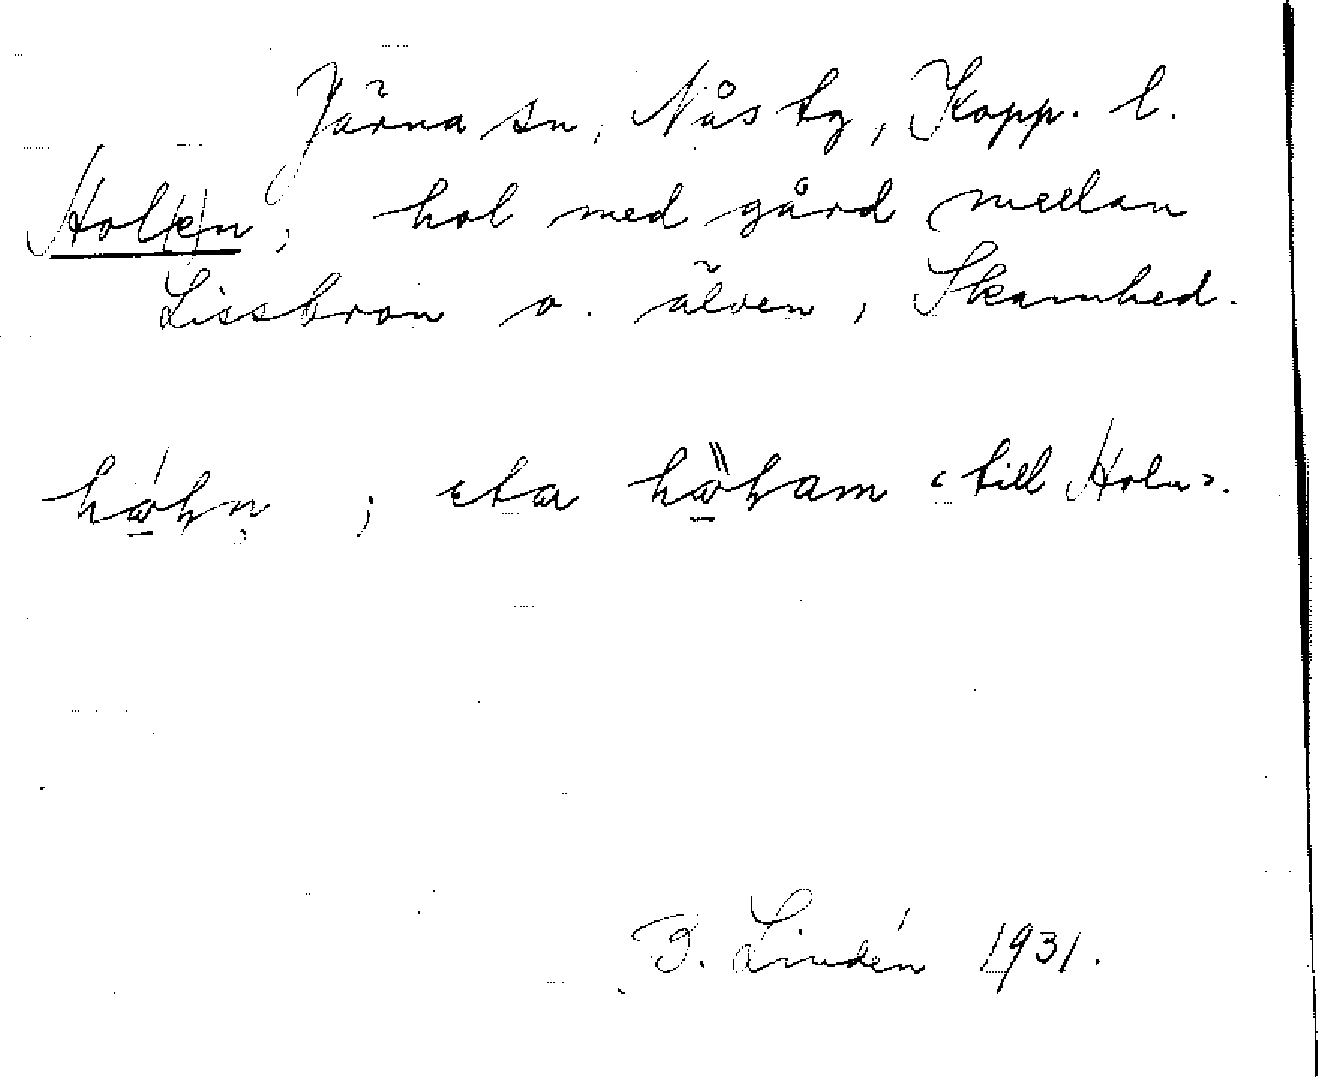 Järna sn, Nås tg, Kopp. l.
Hol(e)n, hol med gård mellan
Lissbron o. älven, Skamhed.
eta till Holn.
B. Lindén 1931.